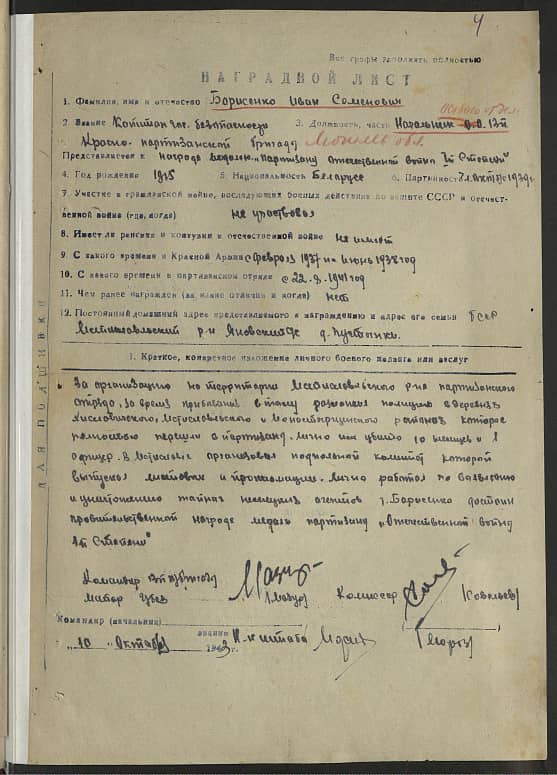 4
Все графы заполнять полностью
НАГРАДНОЙ ЛИСТ
1. Фамилия, имя и отчество Борисенко Иван Семенович
особого отдел.
2. Звание Капитан гос. безопасности 3. Должность, часть Начальник О.О. 13й
Красно-партизанской бригады Могилев. обл.
Представляется к награде медалью „Партизану отечественной войны 1й Степени"
4. Год рождения 1915 5. Национальность Беларусс 6. Партийность 1939г.
7. Участие в гражданской войне, последующих боевых действиях по защите СССР и отечест-
венной войне (где, когда) не участвовал
8. Имеет ли ранения и контузии в отечественной войне не имеет
9. С какого времени в Красной Армии с февраля 1937 по июнь 1938 год
10. С какого времени в партизанском отряде с 22.8.1941 год
11. Чем ранее награжден (за какие отличия и когда) нет
12. Постоянный домашний адрес представляемого к награждению и адрес его семьи БССР
Мстиславльский р-н Яновский с д. Пустынки
ДЛЯ ПОДШИВКИ
I. Краткое, конкретное изложение личного боевого подвига или заслуг
За организацию на территории Мстиславльского р-на партизанского
отряда, за время пребывания в тылу разложил полицию в деревнях
Хиславичского, Мстиславльского и Монастырщинского районов которое
полностью перешли в партизаны. лично им убито 10 немцев и 1
офицер. В Мстиславле организовал подпольный комитет который
выпускал листовки и прокламации. лично работал по выявлению
и уничтожению тайных немецких агентов т. Борисенко достоин
правительственной награде медаль партизану „Отечественной войны
1й Степени"
Командир
майор Комиссар
Командир (начальник)
звание Н-к штаба
„10" Октября 1943 г.